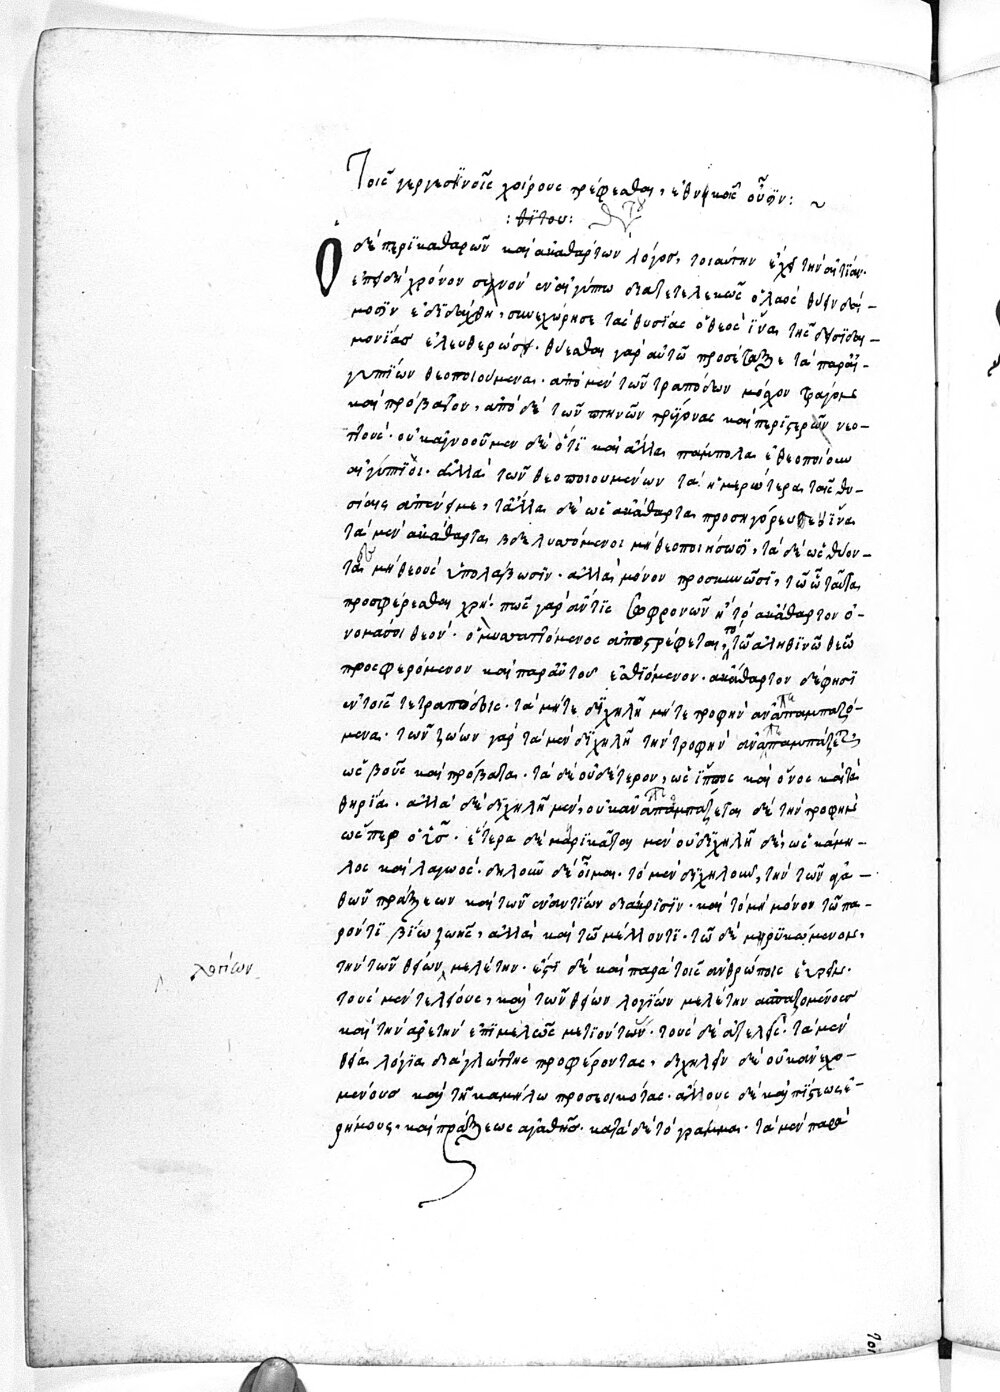 Τοῖς γεργεσηνοῖς χοίρους τρέφεσθαι, ἐθνικοῖς οὖσιν: ~
Ὁ δὲ περὶ καθαρῶν καὶ ἀκαθάρτων λόγος, τοιαύτην ἔχει τὴν αἰτίαν.
ἐπειδὴ χρόνον συχνὸν ἐν αἰγύπτω διατετελεκὼς ὁ λαὸς θύειν δαί-
μοσιν ἐδιδάχθη, συνεχώρησε τὰς θυσίας ὁ θεὸς ἵνα τῆς δεισιδαι-
μονίας ἐλευθερώσῃ. θύεσθαι γὰρ αὐτῶ προσέταξε τὰ παρ' αἰ-
γυπτίων θεοποιούμενα. ἀπὸ μὲν τῶν τετραπόδων μόσχον τράγον
καὶ πρόβατον, ἀπὸ δὲ τῶν πτηνῶν τρυγόνας καὶ περιστερῶν νεο-
ττούς. οὐκ ἀγνοοῦμεν δὲ ὅτι καὶ ἄλλα πάμπολα ἐθεοποίουν
αἰγύπτιοι. ἀλλὰ τῶν θεοποιουμένων τὰ ἡμερώτερα ταῖς θυ-
σίαις ἀπένειμε, τἄλλα δὲ ὡς ἀκάθαρτα προσηγόρευσεν ἵνα
τὰ μὲν ἀκάθαρτα βδελυττόμενοι μὴ θεοποιήσωσι, τὰ δὲ ὡς θύον-
ται μὴ θεοὺς ὑπολάβωσιν. ἀλλὰ μόνον προσκυνῶσι, τῶ ὧ ταῦτα
προσφέρεσθαι χρή. πῶς γὰρ ἄν τις σωφρονῶν ἢ τὸ ἀκάθαρτον ὀ-
νομάσοι θεὸν. ὃ μυσαττόμενος ἀποστρέφεται, ἢ τὸ τῶ ἀληθινῶ θεῶ
προσφερόμενον καὶ παρ' αὐτοῦ ἐσθιόμενον. ἀκάθαρτον δέ φησι
ἐν τοῖς τετραπόδοις. τὰ μήτε διχηλῆ μήτε τροφὴν ἀναπαμπαζό-
μενα. τῶν ζώων γὰρ τὰ μὲν διχηλῆ τὴν τροφὴν ἀναπαμπάζεται
ὡς βοῦς καὶ πρόβατα. τὰ δὲ οὐδέτερον, ὡς ἵππος καὶ ὄνος καὶ τὰ
θηρία. ἀλλὰ δὲ διχηλῆ μὲν, οὐκ ἀναπαμπάζεται δὲ τὴν τροφὴν
ὥσπερ ὁ ὗς. ἕτερα δὲ μαρικᾶται μὲν οὐ διχηλῆ δὲ, ὡς κάμη-
λος καὶ λαγωός. δηλοῦν δὲ οἶμαι. τὸ μὲν διχηλοῦν, τὴν τῶν ἀγα-
θῶν πράξεων καὶ τῶν ἐναντίων διάκρισιν. καὶ τὸ μὴ μόνον τῶ πα-
ρόντι βίω ζῆν, ἀλλὰ καὶ τῶ μέλλοντι. τὸ δὲ μηρυκώμενον,
τὴν τῶν θείων μελέτην. ἔστι δὲ καὶ παρὰ τοῖς ἀνθρώποις εὑρεῖν.
τοὺς μὲν τελείους, καὶ τῶν θείων λογίων μελέτην ἀσπαζομένους
καὶ τὴν ἀρετὴν ἐπιμελῶς μετιόντων. τοὺς δὲ ἀτελεῖς. τὰ μὲν
θεῖα λόγια διὰ γλώττης προφέροντας, διχηλεῖν δὲ οὐκ ἀνεχο-
μένους καὶ τῆ καμήλω προσεοικότας. ἄλλους δὲ καὶ πίστεως ἐ-
ρήμους, καὶ πράξεως ἀγαθῆς. κατὰ δὲ τὸ γράμμα. τὰ μὲν παρὰ